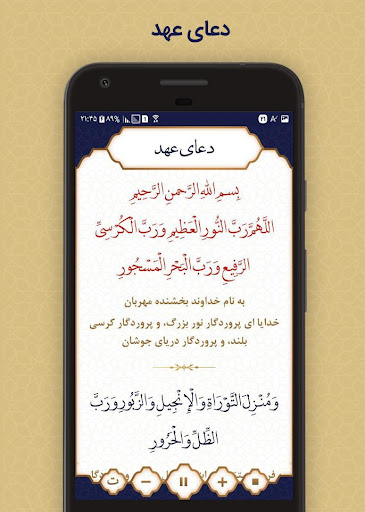 دعای عهد
۲۱:۴۵ ۸۹%
۲۱
دعای عهد
بِسمِ اللهِ الرَّحمنِ الرَّحیمِ
اَللّهُمَّ رَبَّ النُّورِ الْعَظیمِ وَ رَبَّ الْکُرْسِیِّ
الرَّفیعِ وَ رَبَّ الْبَحْرِ الْمَسْجُورِ
به نام خداوند بخشنده مهربان
خدایا ای پروردگار نور بزرگ، و پروردگار کرسی
بلند، و پروردگار دریای جوشان
وَ مُنْزِلَ التَّوْراةِ وَ الْاِنْجیلِ وَ الزَّبُورِ وَ رَبَّ
الظِّلِّ وَ الْحَرُورِ
ت